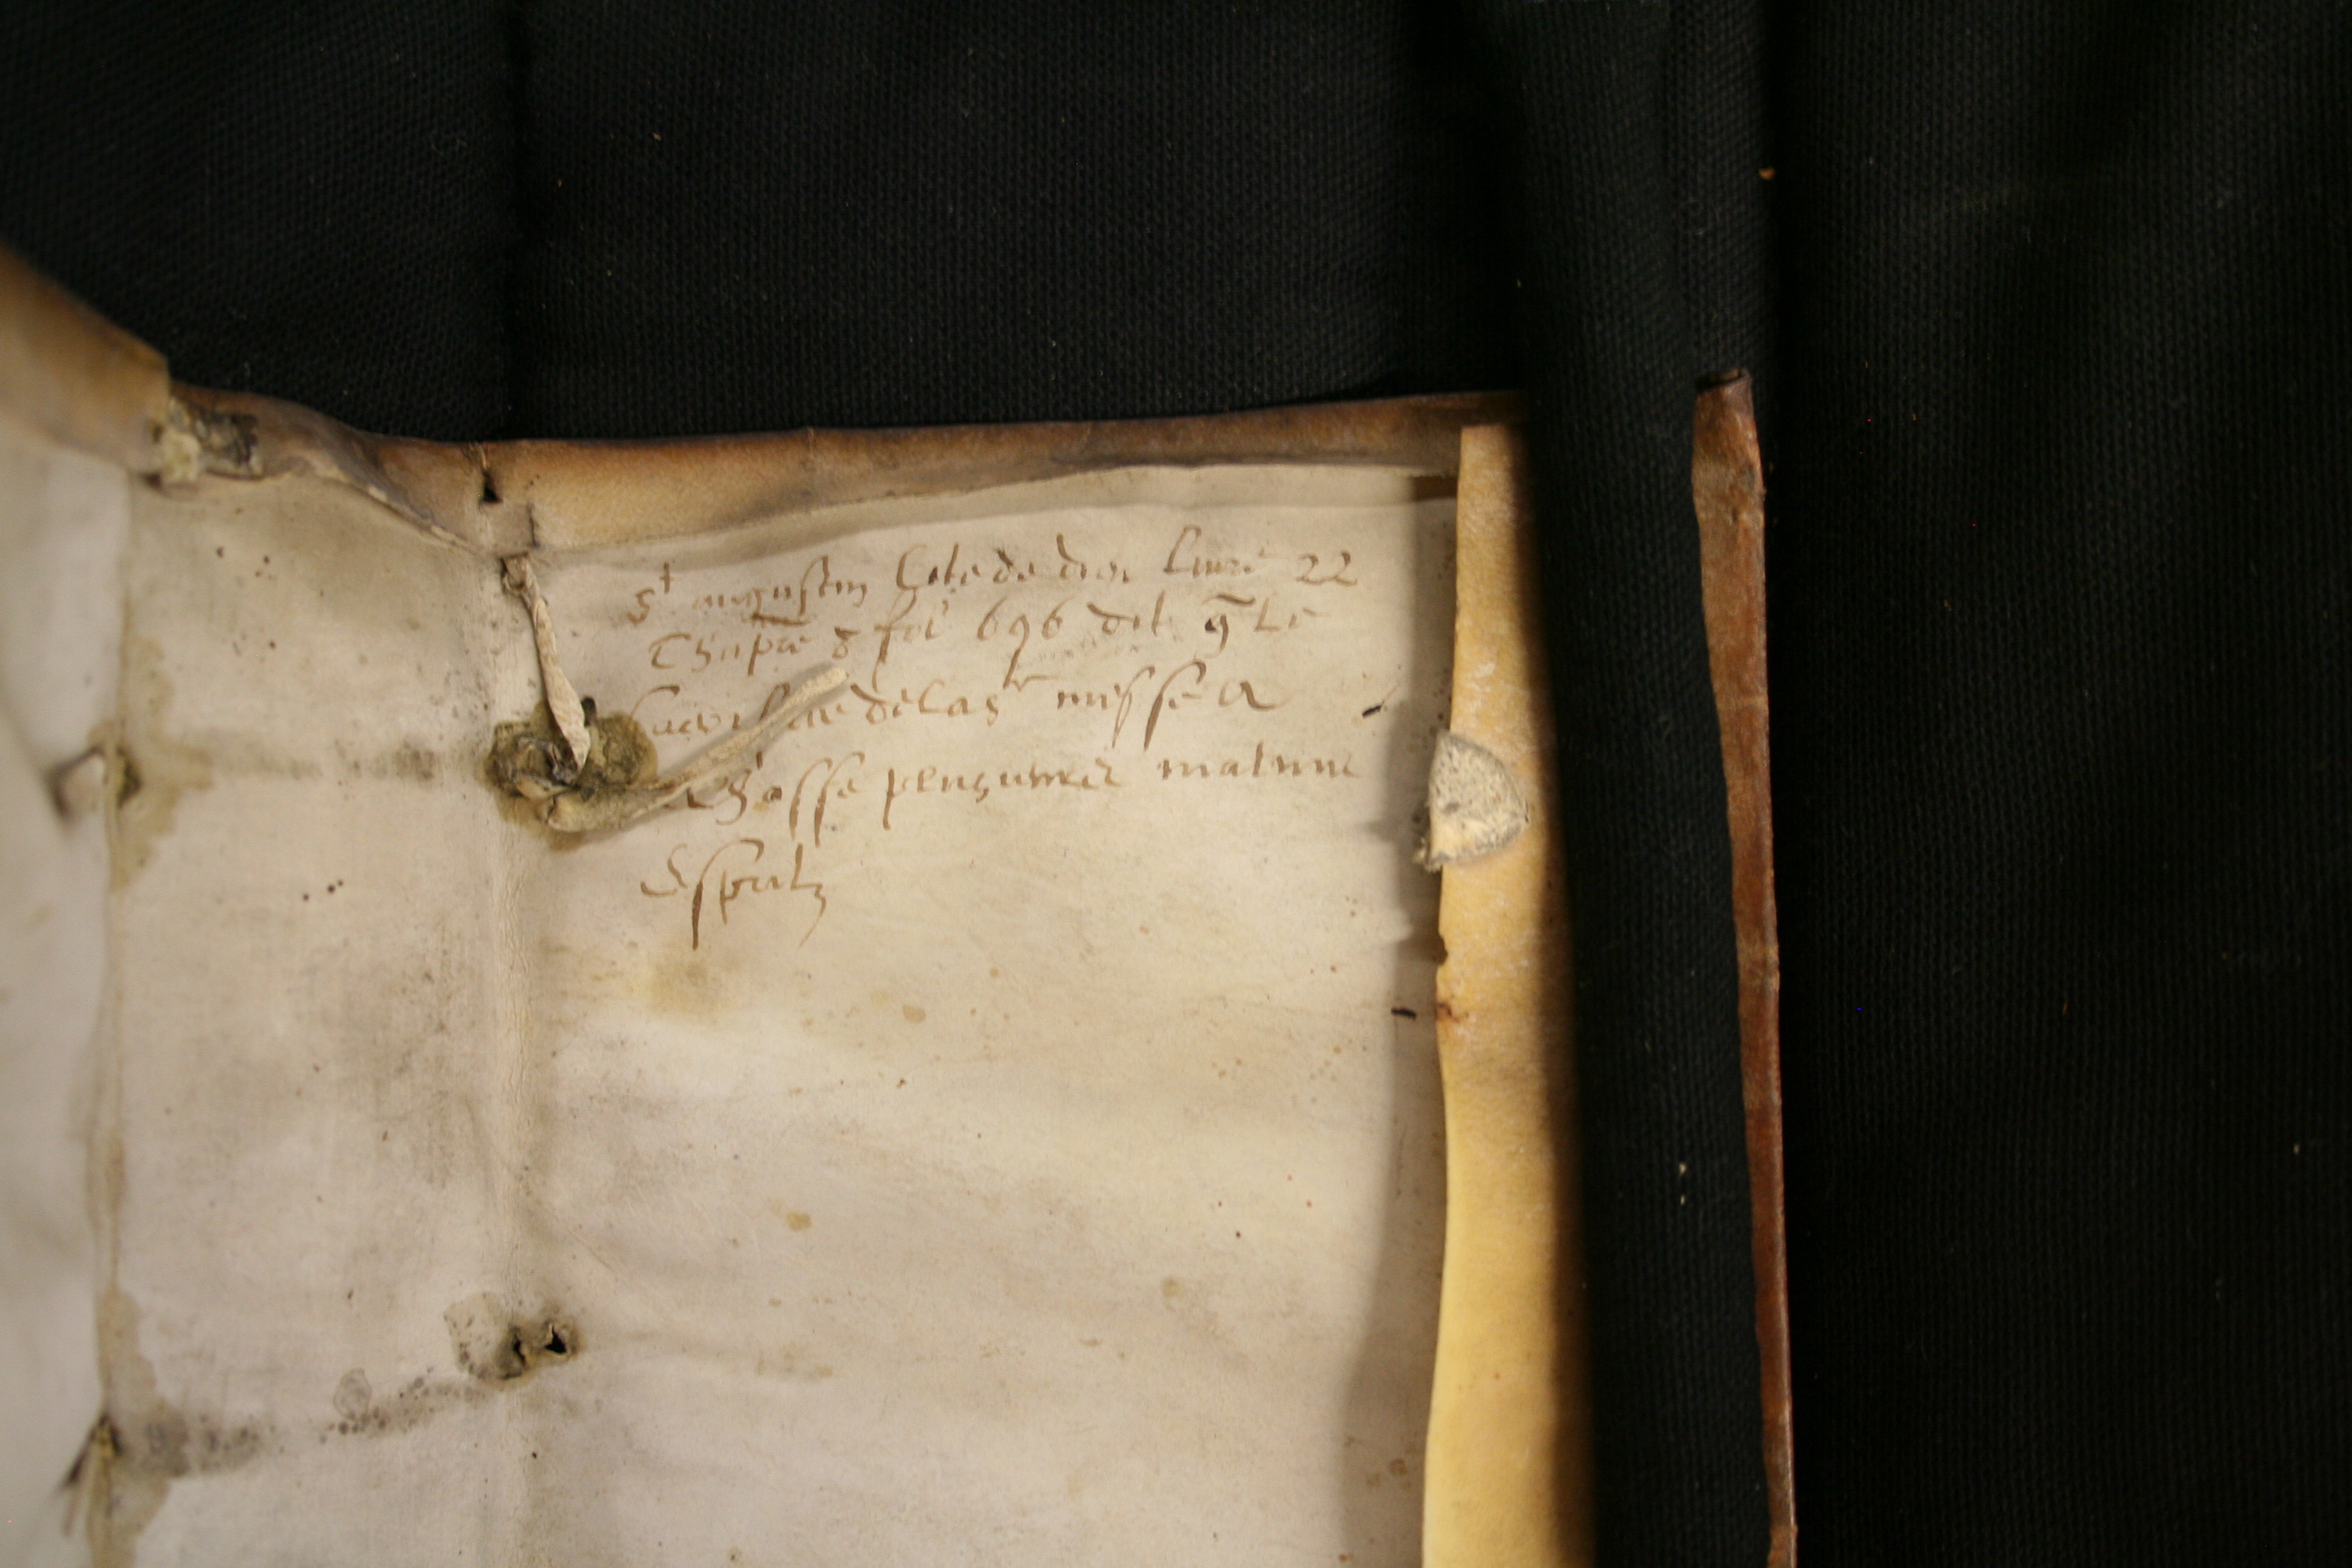 St augustin Cite de dieu livre 22
Chapre 8 fol 696 dit q̃ Le
sacrifice de la Ste messe a
Chasse plusieurs malins
Espritz